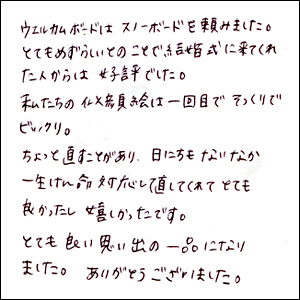 ウエルカムボードはスノーボードを頼みました。
とてもめずらしいとのことで結婚式に来てくれ
た人からは好評でした。
私たちの似顔絵は一回目でそっくりで
ビックリ。
ちょっと直すことがあり、日にちもないなか
一生けん命対応して直してくれてとても
良かったし嬉しかったです。
とても良い思い出の一品になり
ました。ありがとうございました。